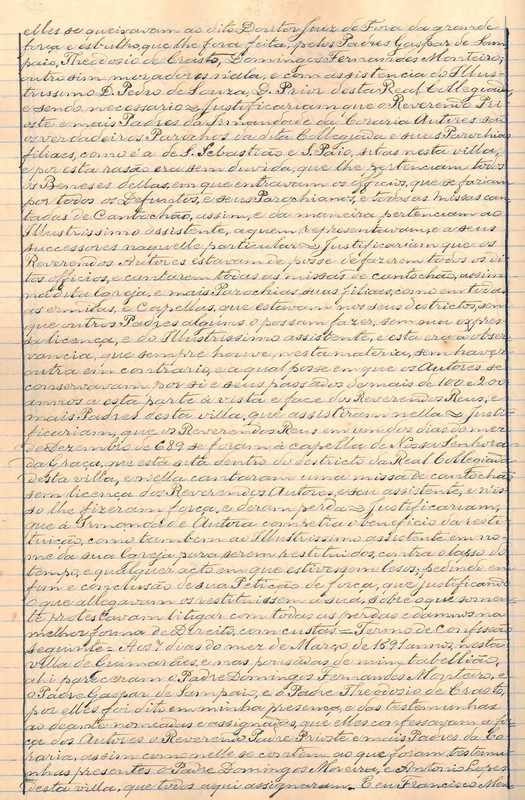 elles se queixavam ao dito Doutor Juiz de Fora da grande
força e esbulho, que lhe fora feita, pelos Padres Gaspar de Sam-
paio, Theodosio de Crasto, Domingos Fernandes Monteiro,
outrosim moradores nella, e com assistencia do Illus-
trissimo D. Pedro de Souza, D. Prior desta Real Collegiada,
e sendo necessario = Justificariam que o Reverendo Pri-
oste e mais Padres da Irmandade da Coraria Autores são
os verdadeiros Parochos da dita Collegiada e suas Parochias
filiaes, como é a de S. Sebastião e S. Paio, sitas nesta villa,
e por esta rasão era sem duvida, que lhe pertenciam todos
os Beneses dellas, em que entravam os officios, que se faziam
por todos os Defunctos, e seus Parochianos, e todas as missas can-
tadas de Cantochão, assim, e da maneira pertenciam ao
Illustrissimo assistente, a quem representavam, e a seus
successores naquelle particular = Justificariam que os
Reverendos Autores estavam de posse de fazerem todos os di-
tos officios, e cantarem todas as missas de cantochão, assim
na dita Igreja, e mais Parochias suas filiaes, como em todas
as ermidas, e Capellas, que estavam nos seus destrictos, sem
que outros Padres alguns o possam fazer, sem sua expres-
sa licença, e do Illustrissimo assistente, e esta era a obser-
vancia, que sempre houve, nesta materia, sem haver
outra em contrario, e a qual posse em que os Autores se
conservavam por si e seus passados de mais de 100 e 200
annos a esta parte á vista e face dos Reverendos Reus, e
mais Padres desta villa, que assistiram nella = Justi-
ficariam, que os Reverendos Reus em um dos dias do mez
de Dezembro de 689 se foram á capella de Nossa Senhora
da Graça, que está sita dentro do destricto da Real Collegiada
desta villa, e nella cantaram uma missa de cantochão
sem licença dos Reverendos Autores, e seu assistente, e nis-
so lhe fizeram força, e deram perda = Justificariam,
que á Irmandade Autora competia o beneficio da resti-
tuição, como tambem ao Illustrissimo assistente em no-
me da sua Igreja para serem restituidos, contra o lapso do
tempo, e qualquer acto em que estivessem lesos, pedindo em
fim e conclusão de sua Petição de força, que justificando
o que allegavam os restituissem á sua, sobre o que somen-
te protestavam litigar com todas as perdas e damnos na
melhor forma de Direito, com custas = Termo de Confissão
seguinte = Aos 7 dias do mez de Março, de 1691 annos, nesta
villa de Guimarães, e nas pousadas de mim tabellião,
ahi pareceram o Padre Domingos Fernandes Monteiro, e
o Padre Gaspar de Sampaio, e o Padre Theodosio de Crasto,
por elles foi dito em minha presença, e das testemunhas
ao deante nomeadas e assignadas, que elles confessavam a for-
ça dos Autores o Reverendo Padre Prioste e mais Padres da Co-
raria, assim como nelle se contém ao que foram testemu-
nhas presentes o Padre Domingos Moreira, e Antonio Lopes
desta villa, que todos aqui assignaram. E eu Francisco Men-